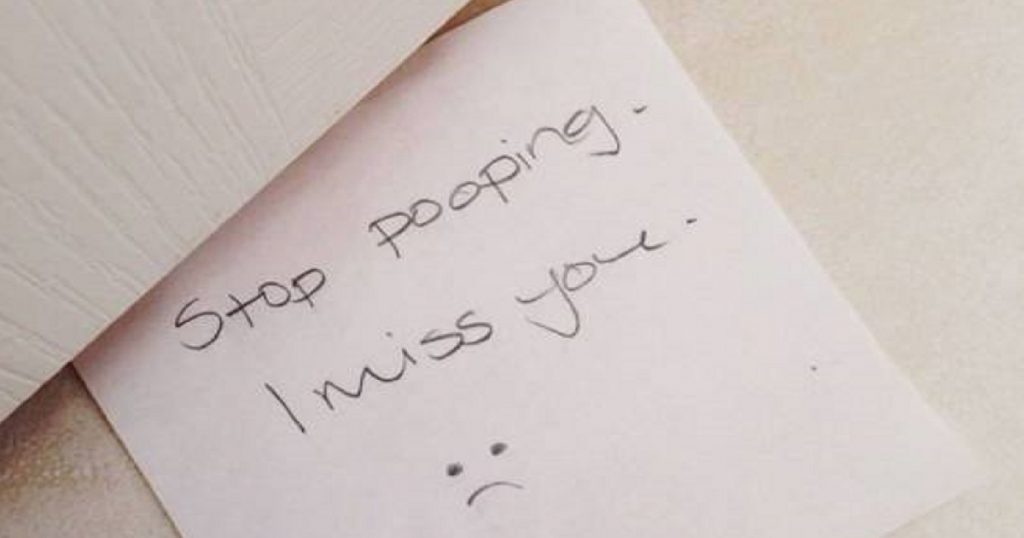 Stop pooping.
I miss you.